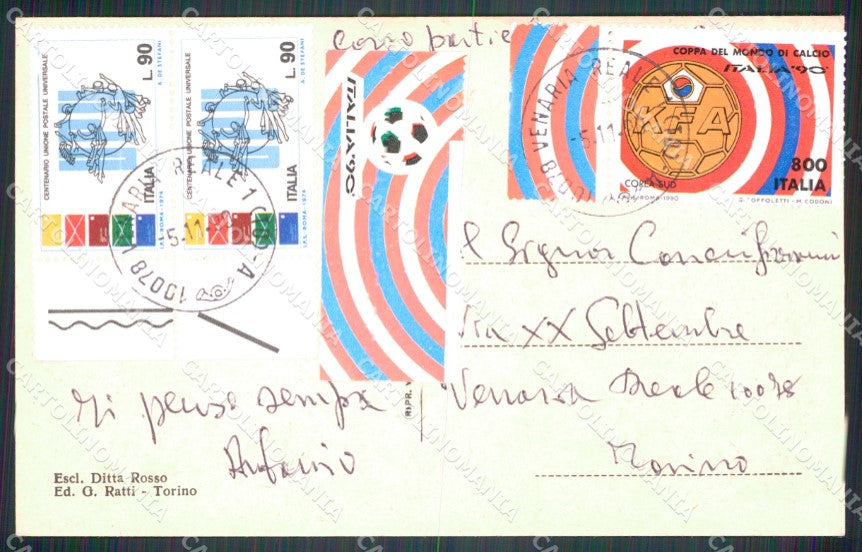 Corso
L. 90
A. DE STEFANI
CENTENARIO UNIONE POSTALE UNIVERSALE
ITALIA
I.P.S. - ROMA - 1974
L. 90
A. DE STEFANI
CENTENARIO UNIONE POSTALE UNIVERSALE
ITALIA
I.P.S. - ROMA - 1974
VENARIA REALE 1 (TO) - A
10078
5.11
ITALIA '90
VENARIA REALE
5.11
COPPA DEL MONDO DI CALCIO
ITALIA '90
KFA
800
ITALIA
COREA SUD
I.P.Z.S. - ROMA - 1990
G. TOFFOLETTI - M. CODONI
Signor
Via XX Settembre
Venaria Reale 10078
Torino
Ti penso sempre
Antonio
RIPR. V
Escl. Ditta Rosso
Ed. G. Ratti - Torino
CARTOLINOMANIA